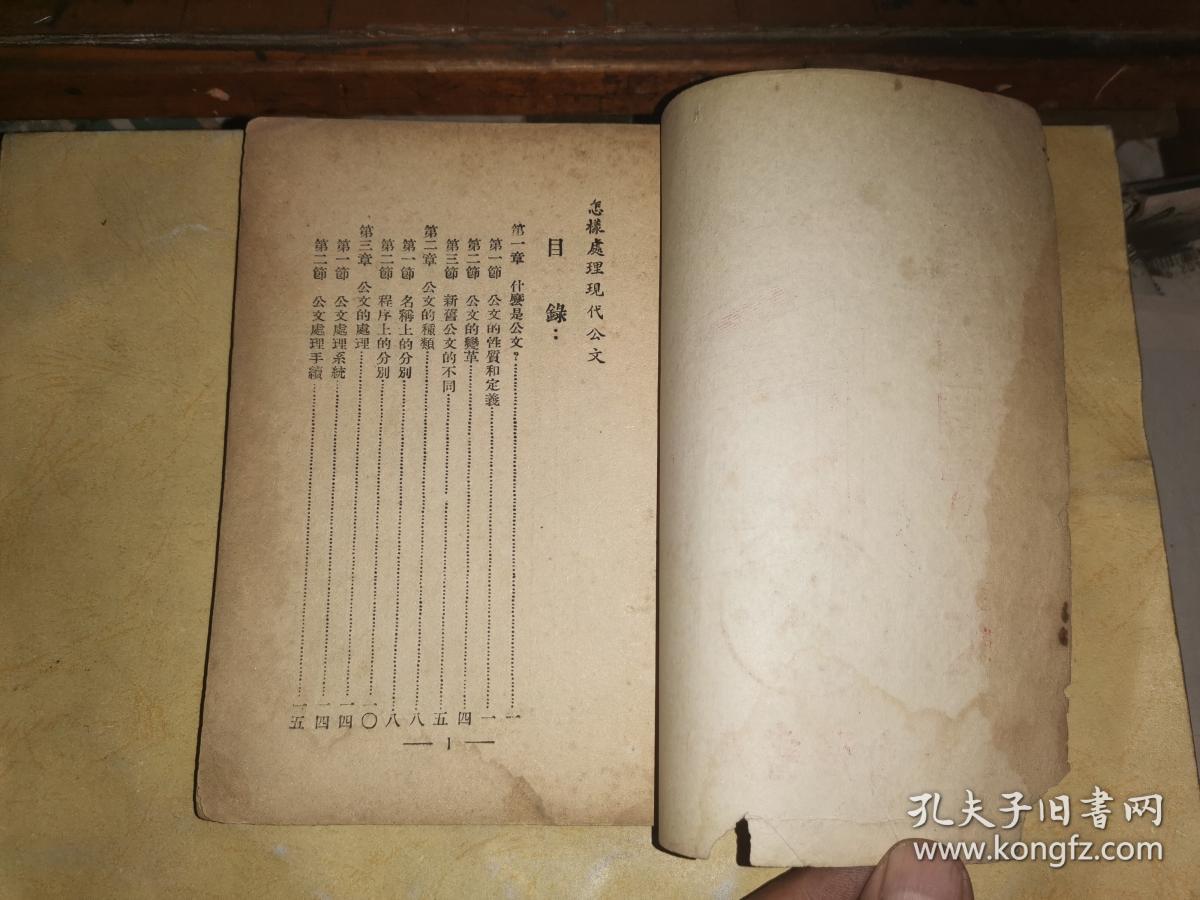 怎樣處理現代公文
目錄：
第一章 什麼是公文？……一
第一節 公文的性質和定義……一
第二節 公文的變革……四
第三節 新舊公文的不同……五
第二章 公文的種類……八
第一節 名稱上的分別……八
第二節 程序上的分別……一〇
第三章 公文的處理……一四
第一節 公文處理系統……一四
第二節 公文處理手續……一五
— 1 —
孔夫子旧书网
www.kongfz.com